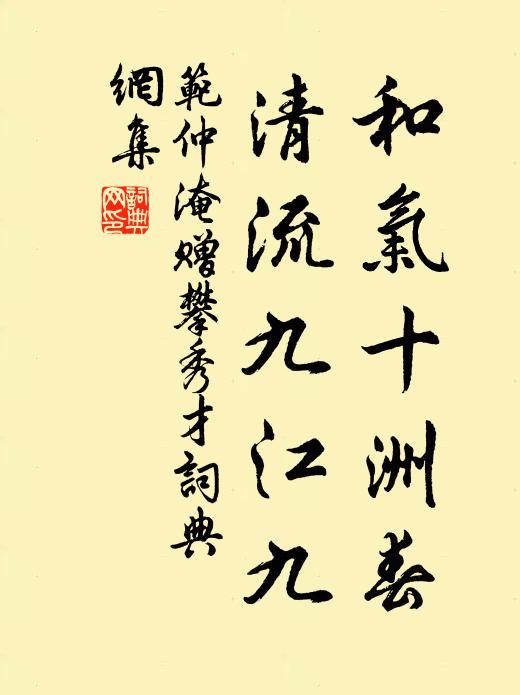 和氣十洲春
清流九江九
範仲淹贈攀秀才詞典
網集
詞典
網印